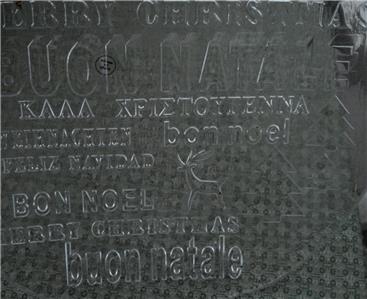 MERRY CHRISTMAS
BUON NATALE
ΚΑΛΑ ΧΡΙΣΤΟΥΓΕΝΝΑ
WEIHNACHTEN bon noel
FELIZ NAVIDAD
BON NOEL
MERRY CHRISTMAS
buon natale